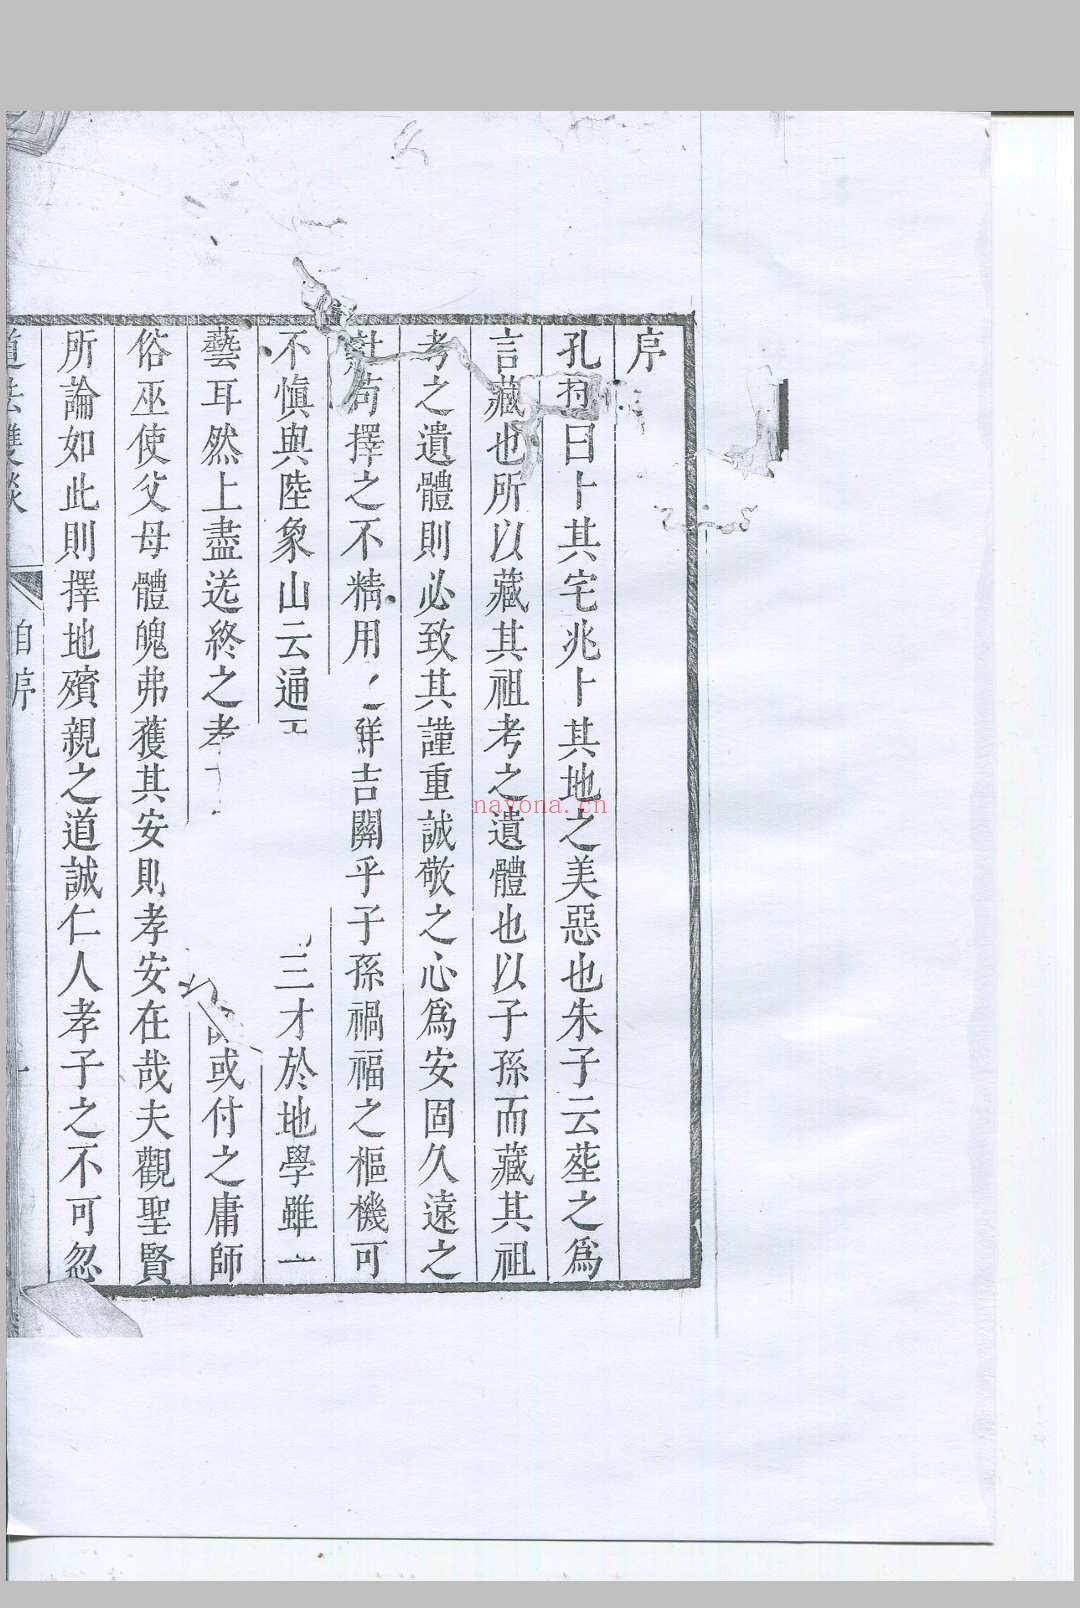 序
孔曰卜其宅兆卜其地之美惡也朱子云葬之為
言藏也所以藏其祖考之遺體也以子孫而藏其祖
考之遺體則必致其謹重誠敬之心為安固久遠之
計苟擇之不精用吉關乎子孫禍福之樞機可
不慎與陸象山云通三才於地學雖一
藝耳然上盡送終之孝或付之庸師
俗巫使父母體魄弗獲其安則孝安在哉夫觀聖賢
所論如此則擇地殯親之道誠仁人孝子之不可忽
道法雙談 自序 一
nayona.cn